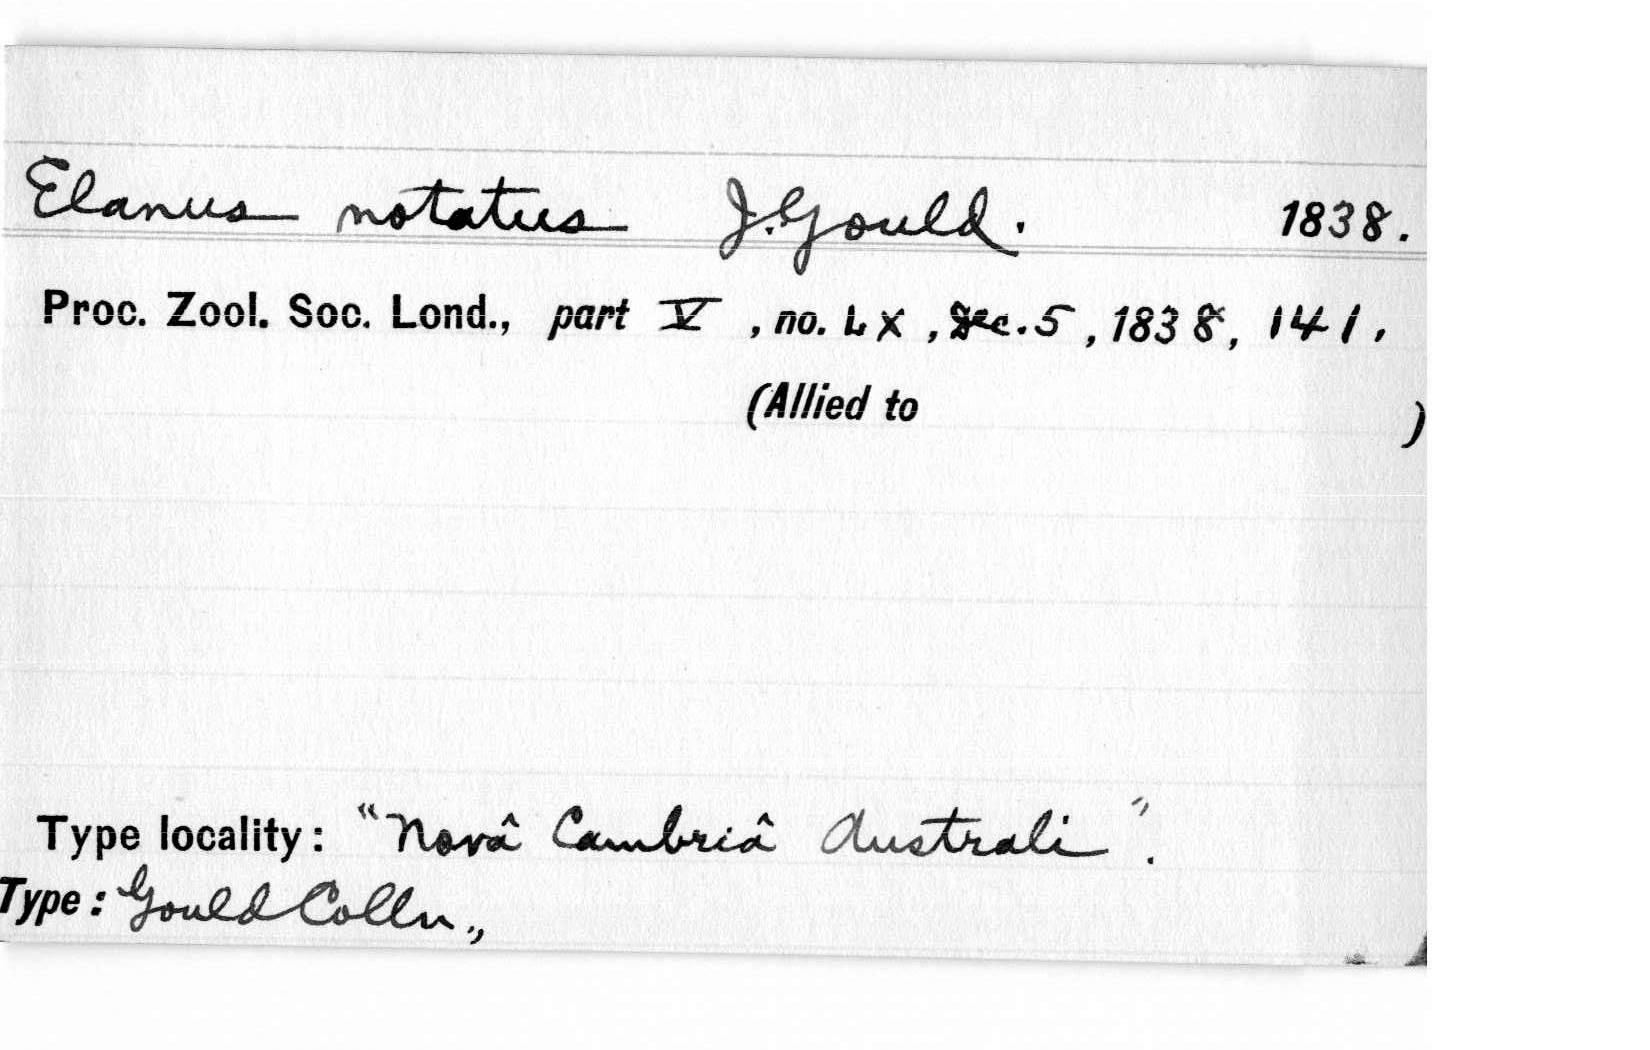 Elanus notatus J. Gould. 1838.
Proc. Zool. Soc. Lond., part V, no. LX, Dec. 5, 1838, 141,
(Allied to )
Type locality: "Novâ Cambriâ Australi".
Type: Gould Colln.,